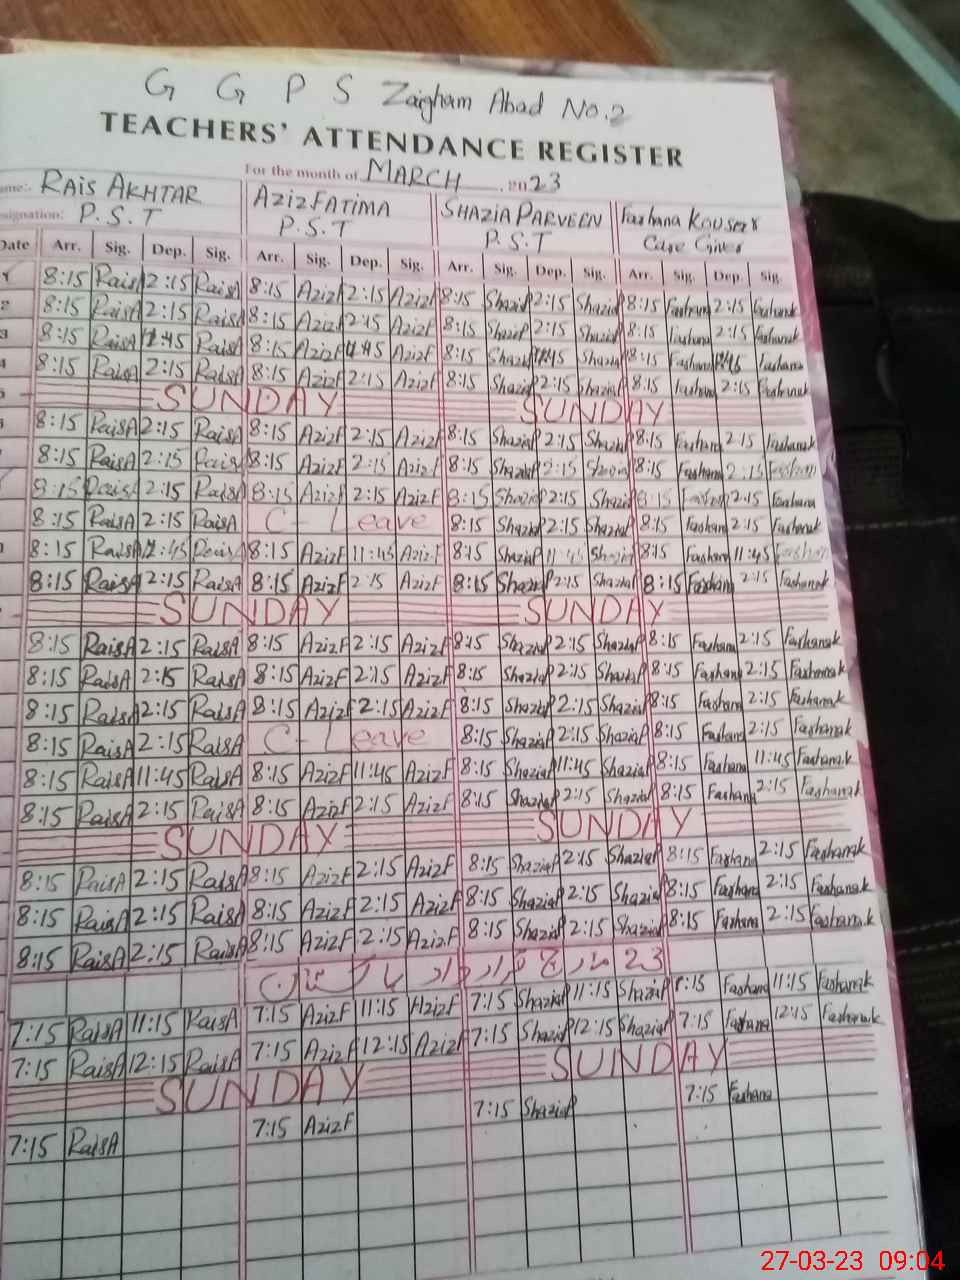 G G P S Zaigham Abad No.2
TEACHERS' ATTENDANCE REGISTER
For the month of MARCH 2023
ame:- RAIS AKHTAR AZIZ FATIMA SHAZIA PARVEEN Farhana Kouser
signation: P.S.T P.S.T P.S.T Care Giver
Date Arr. Sig. Dep. Sig. Arr. Sig. Dep. Sig. Arr. Sig. Dep. Sig. Arr. Sig. Dep. Sig.
8:15 RaisA 2:15 RaisA 8:15 AzizF 2:15 AzizF 8:15 ShaziaP 2:15 ShaziaP 8:15 Farhana 2:15 Farhanak
2 8:15 RaisA 2:15 RaisA 8:15 AzizF 2:15 AzizF 8:15 ShaziaP 2:15 ShaziaP 8:15 Farhana 2:15 Farhanak
3 8:15 RaisA RaisA 8:15 AzizF AzizF 8:15 ShaziaP ShaziaP 8:15 Farhana Farhanak
4 8:15 RaisA 2:15 RaisA 8:15 AzizF 2:15 AzizF 8:15 ShaziaP 2:15 ShaziaP 8:15 Farhana 2:15 Farhanak
5 SUNDAY SUNDAY
8:15 RaisA 2:15 RaisA 8:15 AzizF 2:15 AzizF 8:15 ShaziaP 2:15 ShaziaP 8:15 Farhana 2:15 Farhanak
8:15 RaisA 2:15 RaisA 8:15 AzizF 2:15 AzizF 8:15 ShaziaP 2:15 ShaziaP 8:15 Farhana 2:15 Farhana
8:15 RaisA 2:15 RaisA 8:15 AzizF 2:15 AzizF 8:15 ShaziaP 2:15 ShaziaP 8:15 Farhana 2:15 Farhanak
8:15 RaisA 2:15 RaisA C- Leave 8:15 ShaziaP 2:15 ShaziaP 8:15 Farhana 2:15 Farhanak
8:15 RaisA RaisA 8:15 AzizF 11:45 AzizF 8:15 ShaziaP 11:45 ShaziaP 8:15 Farhana 11:45 Farhana
8:15 RaisA 2:15 RaisA 8:15 AzizF 2:15 AzizF 8:15 ShaziaP 2:15 ShaziaP 8:15 Farhana 2:15 Farhanak
SUNDAY SUNDAY
8:15 RaisA 2:15 RaisA 8:15 AzizF 2:15 AzizF 8:15 ShaziaP 2:15 ShaziaP 8:15 Farhana 2:15 Farhanak
8:15 RaisA 2:15 RaisA 8:15 AzizF 2:15 AzizF 8:15 ShaziaP 2:15 ShaziaP 8:15 Farhana 2:15 Farhanak
8:15 RaisA 2:15 RaisA 8:15 AzizF 2:15 AzizF 8:15 ShaziaP 2:15 ShaziaP 8:15 Farhana 2:15 Farhanak
8:15 RaisA 2:15 RaisA C- Leave 8:15 ShaziaP 2:15 ShaziaP 8:15 Farhana 2:15 Farhanak
8:15 RaisA 11:45 RaisA 8:15 AzizF 11:45 AzizF 8:15 ShaziaP 11:45 ShaziaP 8:15 Farhana 11:45 Farhanak
8:15 RaisA 2:15 RaisA 8:15 AzizF 2:15 AzizF 8:15 ShaziaP 2:15 ShaziaP 8:15 Farhana 2:15 Farhanak
SUNDAY SUNDAY
8:15 RaisA 2:15 RaisA 8:15 AzizF 2:15 AzizF 8:15 ShaziaP 2:15 ShaziaP 8:15 Farhana 2:15 Farhanak
8:15 RaisA 2:15 RaisA 8:15 AzizF 2:15 AzizF 8:15 ShaziaP 2:15 ShaziaP 8:15 Farhana 2:15 Farhanak
8:15 RaisA 2:15 RaisA 8:15 AzizF 2:15 AzizF 8:15 ShaziaP 2:15 ShaziaP 8:15 Farhana 2:15 Farhanak
23 مارچ قرارداد پاکستان
7:15 RaisA 11:15 RaisA 7:15 AzizF 11:15 AzizF 7:15 ShaziaP 11:15 ShaziaP 7:15 Farhana 11:15 Farhanak
7:15 RaisA 12:15 RaisA 7:15 AzizF 12:15 AzizF 7:15 ShaziaP 12:15 ShaziaP 7:15 Farhana 12:15 Farhanak
SUNDAY SUNDAY
7:15 RaisA 7:15 AzizF 7:15 ShaziaP 7:15 Farhana
27-03-23 09:04